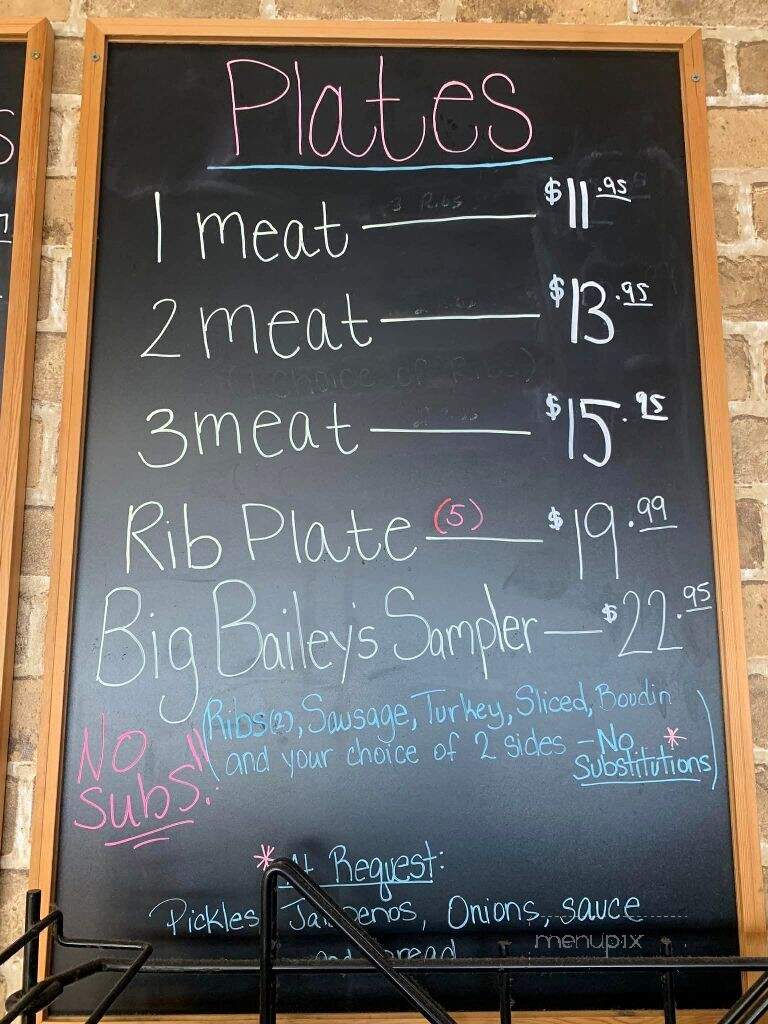 Plates
1 meat $11.95
2 meat $13.95
3 meat $15.95
Rib Plate (5) $19.99
Big Bailey's Sampler $22.95
(Ribs(2), Sausage, Turkey, Sliced, Boudin
and your choice of 2 sides - No *
Substitutions)
No
Subs!!
* At Request:
Pickles, Jalapenos, Onions, sauce
and bread
menupix